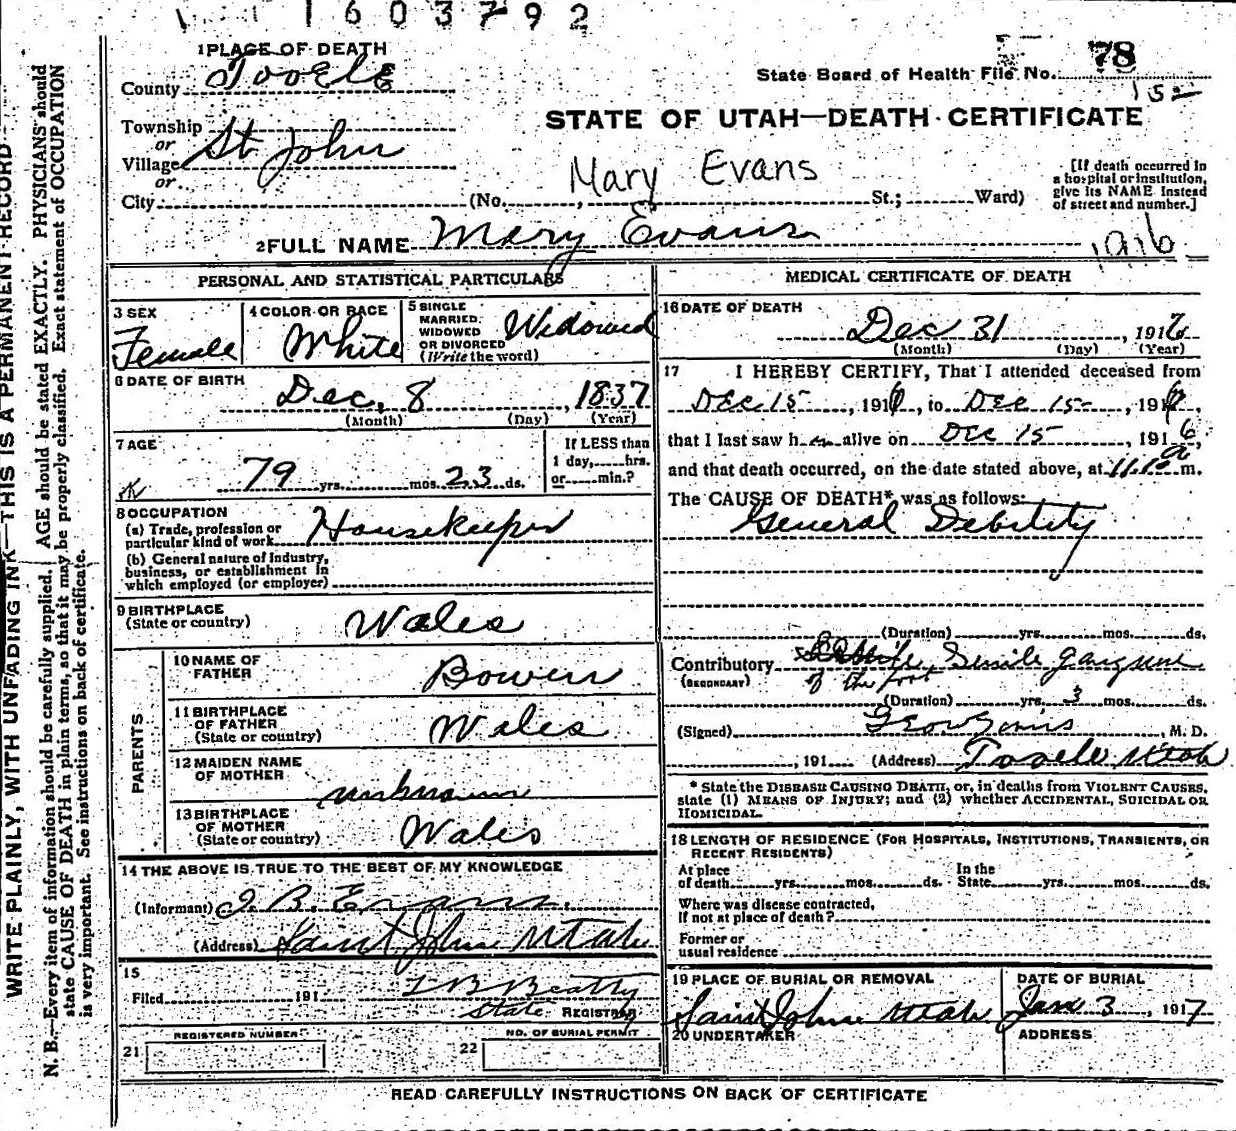 1603792
1 PLACE OF DEATH
County Tooele
State Board of Health File No. 78
152
STATE OF UTAH—DEATH CERTIFICATE
Township
or
Village St John
or
City (No. , St.; Ward)
Mary Evans
[If death occurred in
a hospital or institution,
give its NAME instead
of street and number.]
2 FULL NAME Mary Evans
1916
PERSONAL AND STATISTICAL PARTICULARS
3 SEX
Female
4 COLOR OR RACE
White
5 SINGLE
MARRIED,
WIDOWED
OR DIVORCED
(Write the word)
Widowed
6 DATE OF BIRTH
Dec, 8, 1837
(Month) (Day) (Year)
7 AGE
79 yrs. mos. 23 ds.
If LESS than
1 day, hrs.
or min.?
8 OCCUPATION
(a) Trade, profession or
particular kind of work Housekeeper
(b) General nature of industry,
business, or establishment in
which employed (or employer)
9 BIRTHPLACE
(State or country) Wales
PARENTS
10 NAME OF
FATHER Bowen
11 BIRTHPLACE
OF FATHER
(State or country) Wales
12 MAIDEN NAME
OF MOTHER unknown
13 BIRTHPLACE
OF MOTHER
(State or country) Wales
14 THE ABOVE IS TRUE TO THE BEST OF MY KNOWLEDGE
(Informant) J. B. Evans.
(Address) Saint John Utah
15
Filed 191 T B Beatty
State REGISTRAR
REGISTERED NUMBER
21
NO. OF BURIAL PERMIT
22
MEDICAL CERTIFICATE OF DEATH
16 DATE OF DEATH
Dec 31, 1916
(Month) (Day) (Year)
17 I HEREBY CERTIFY, That I attended deceased from
Dec 15, 1916, to Dec 15, 1916,
that I last saw her alive on Dec 15, 1916,
and that death occurred, on the date stated above, at 11.10 a m.
The CAUSE OF DEATH* was as follows:
General Debility
(Duration) yrs. mos. ds.
Contributory Senile Gangrene
(SECONDARY) of the foot
(Duration) yrs. 3 mos. ds.
(Signed) M. D.
, 191 (Address) Tooele Utah
* State the DISEASE CAUSING DEATH, or, in deaths from VIOLENT CAUSES,
state (1) MEANS OF INJURY; and (2) whether ACCIDENTAL, SUICIDAL OR
HOMICIDAL.
18 LENGTH OF RESIDENCE (FOR HOSPITALS, INSTITUTIONS, TRANSIENTS, OR
RECENT RESIDENTS)
At place
of death yrs. mos. ds.
In the
State yrs. mos. ds.
Where was disease contracted,
if not at place of death?
Former or
usual residence
19 PLACE OF BURIAL OR REMOVAL
Saint John Utah
DATE OF BURIAL
Jan 3, 1917
20 UNDERTAKER
ADDRESS
READ CAREFULLY INSTRUCTIONS ON BACK OF CERTIFICATE
WRITE PLAINLY, WITH UNFADING INK—THIS IS A PERMANENT RECORD
N. B.—Every item of information should be carefully supplied. AGE should be stated EXACTLY. PHYSICIANS should
state CAUSE OF DEATH in plain terms, so that it may be properly classified. Exact statement of OCCUPATION
is very important. See instructions on back of certificate.